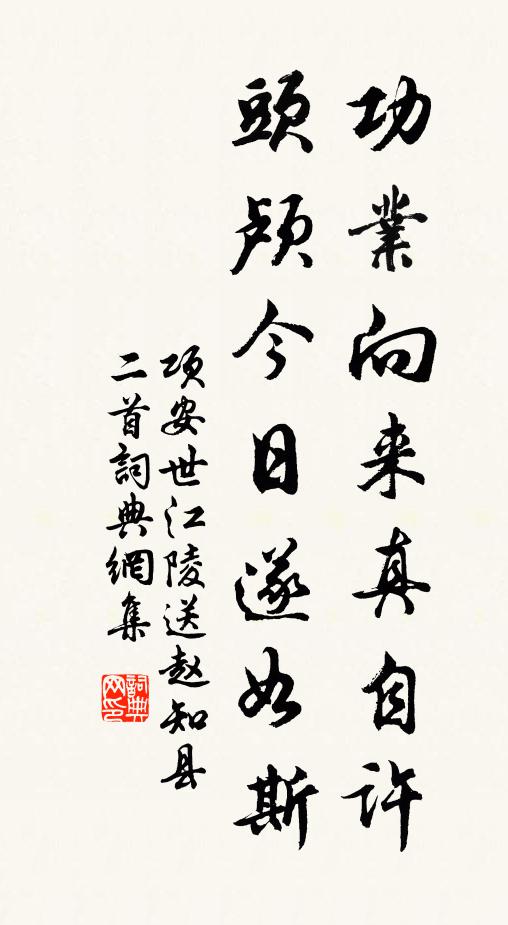 功業向来真自許
頭顱今日遂如斯
項安世江陵送赵知县
二首詞典網集
詞典
网印